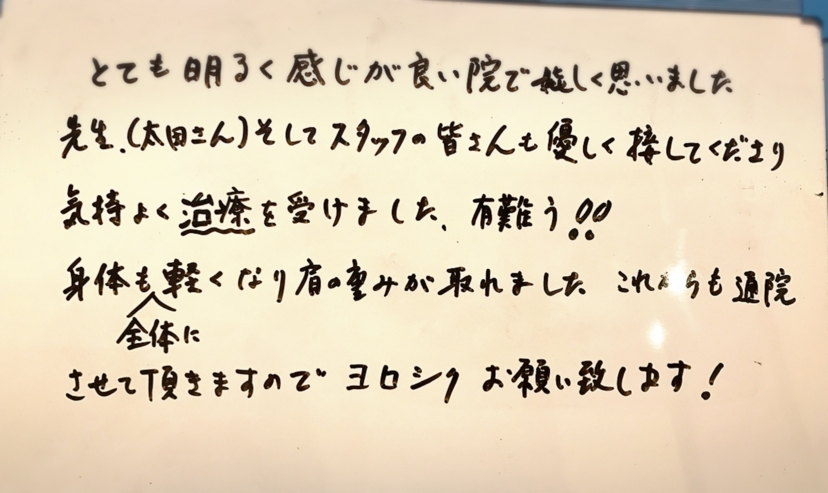 とても明るく感じが良い院で嬉しく思いました
先生、(太田さん)そしてスタッフの皆さんも優しく接してくださり
気持よく治療を受けました、有難う!!
身体も軽くなり肩の重みが取れました これからも通院
全体に
させて頂きますのでヨロシクお願い致します!